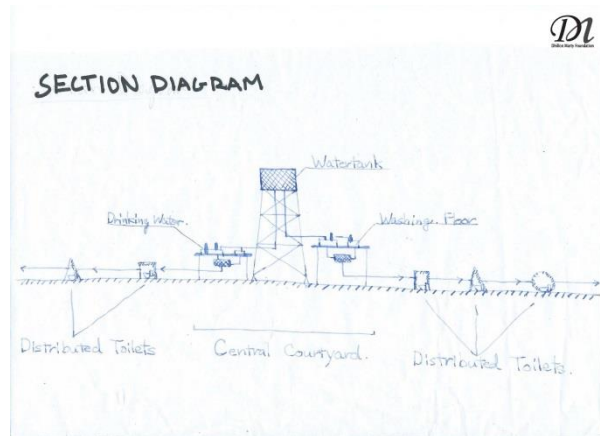 SECTION DIAGRAM
Watertank
Drinking Water.
Washinge Floor
Distributed Toilets
Central Courtyard.
Distributed Toilets.